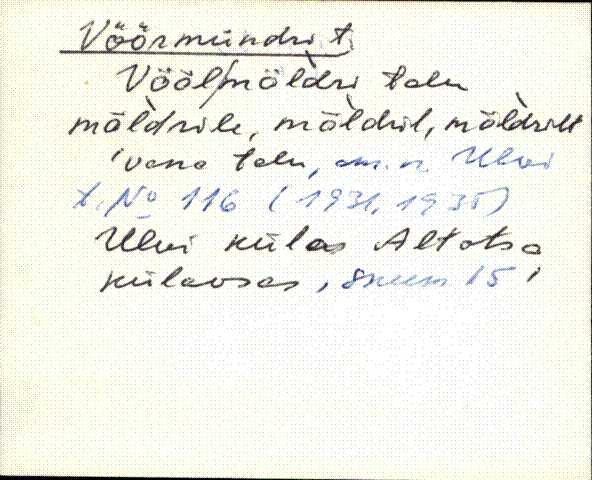 Vöörmündri t.
Vööl/möldri talu
möldrile, möldril, möldrilt
'vana talu, am. n. Ulvi
t. No 116 (1931, 1935)
Ulvi külas Altotsa
külaosas, 15'